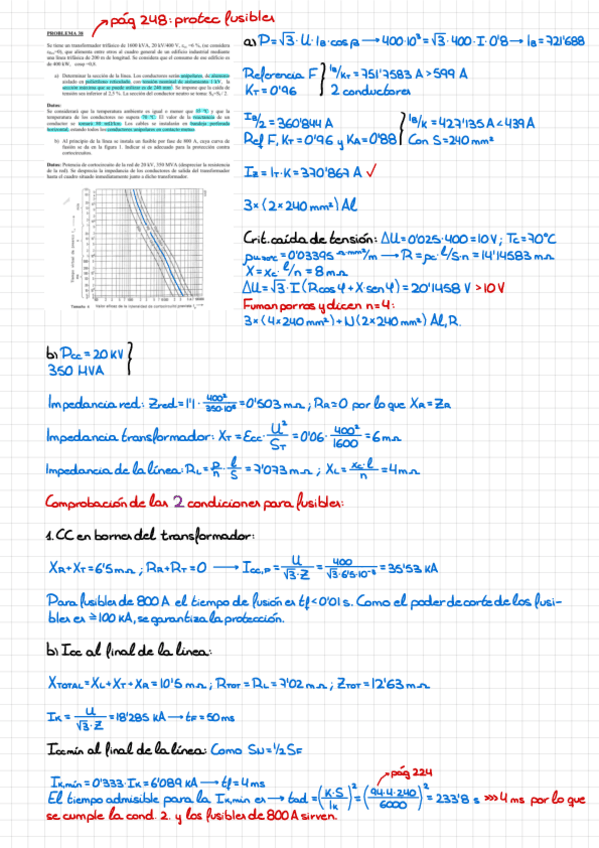 pág 248: protec fusibles
PROBLEMA 30
Se tiene un transformador trifásico de 1600 kVA, 20 kV/400 V, εcc =6 %, (se considera
que alimenta entre otros al cuadro general de un edificio industrial mediante
una línea de 200 m de longitud. Se considera que el consumo de ese edificio es
de 400 kW, cosφ =0,8.
a) Determinar la sección de la línea. Los conductores serán unipolares, de aluminio
aislado en polietileno reticulado, con tensión nominal de aislamiento 1 kV, la
sección máxima que se puede utilizar es de 240 mm². Se impone que la caída de
tensión sea inferior al 2,5 %. La sección del conductor neutro se toma: SN=SF/2
Datos:
Se considerará que la temperatura ambiente es igual o menor que
temperatura de los conductores no supera
conductor se tomará Los cables se instalarán en bandeja perforada
horizontal, estando todos los conductores unipolares en contacto mutuo.
b) Al principio de la línea se instala un fusible por fase de 800 A, cuya curva de
fusión se da en la figura 1. Indicar si es adecuado para la protección contra
cortocircuitos.
Datos: Potencia de cortocircuito de la red de 20 kV, 350 MVA (despreciar la resistencia
de la red). Se desprecia la impedancia de los conductores de salida del transformador
hasta el cuadro situado inmediatamente junto a dicho transformador.
a) P=√3·U·IB·cosφ → 400·10³=√3·400·I·0'8 → IB=721'688
Referencia F } IB/KT=751'7583 A>599 A
KT=0'96 2 conductores
IB/2=360'844 A } IB/K=427'135 A<439 A
Ref F, KT=0'96 y KA=0'88 Con S=240 mm²
IZ=IT·K=370'867 A ✓
3×(2×240 mm²) Al
Crit. caída de tensión: ΔU=0'025·400=10V; TC=70ºC
=0'03395 Ω·mm²/m → R=ρc·l/S·n=14'14583 mΩ
X=xc·l/n=8mΩ
ΔU=√3·I(Rcosφ+Xsenφ)=20'1458 V >10 V
Fuman porros y dicen n=4:
3×(4×240 mm²)+N(2×240 mm²) Al, R.
b) Pcc=20 KV }
350 MVA
Impedancia red: Zred=1'1·400²/350·10⁶=0'503 mΩ; RA=0 por lo que XA=ZA
Impedancia transformador: XT=Ecc·U²/ST=0'06·400²/1600=6mΩ
Impedancia de la línea: RL=ρ/n·l/S=7'073mΩ; XL=xc·l/n=4mΩ
Comprobación de las 2 condiciones para fusibles:
1. CC en bornes del transformador:
XA+XT=6'5mΩ; RA+RT=0 → Icc,P=U/√3·Z=400/√3·6'5·10⁻³=35'53 KA
Para fusibles de 800 A el tiempo de fusión es tf<0'01 s. Como el poder de corte de los fusi-
bles es ≥100 KA, se garantiza la protección.
b) Icc al final de la línea:
XTOTAL=XL+XT+XA=10'5 mΩ; RTOT=RL=7'02 mΩ; ZTOT=12'63 mΩ
IK=U/√3·Z=18'285 KA → tF=50ms
Iccmín al final de la línea: Como SN=½SF
IK,mín=0'333·IK=6'089 KA → tf=4ms
pág 224
El tiempo admisible para la IK,mín es → tad=(K·S/IK)²=(94·4·240/6000)²=233'8 s >>> 4 ms por lo que
se cumple la cond. 2. y los fusibles de 800A sirven.